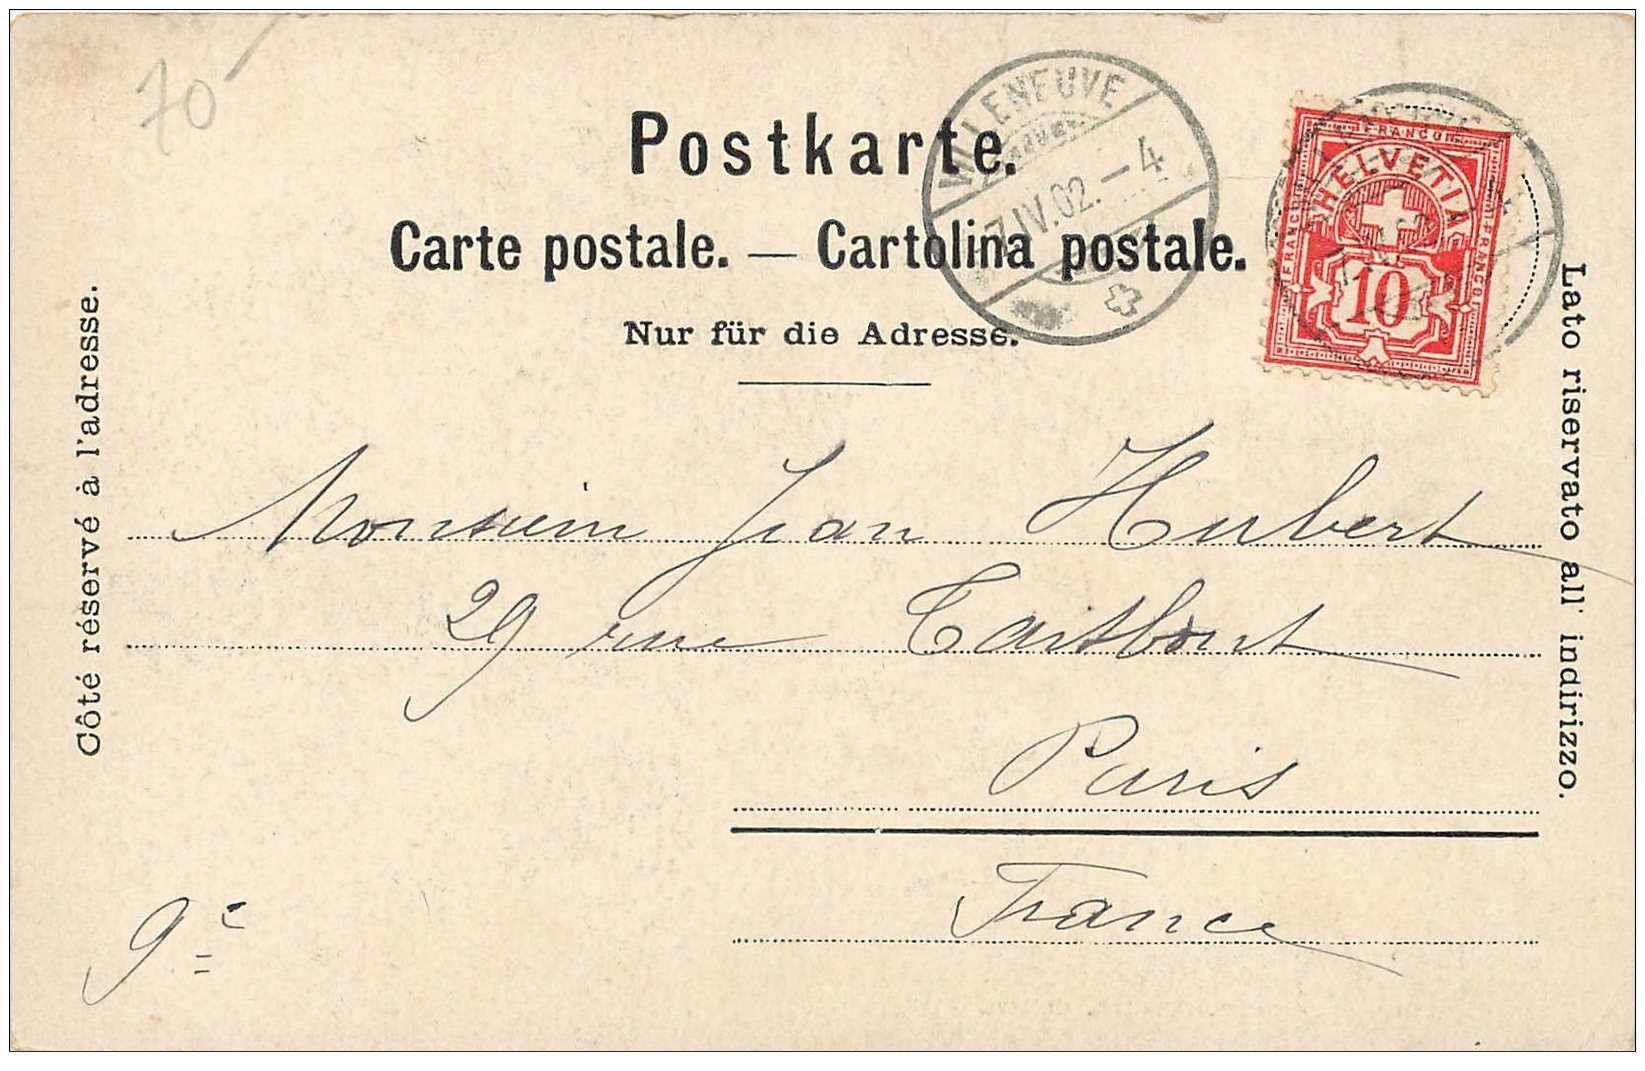 70
Postkarte.
Carte postale. — Cartolina postale.
Nur für die Adresse.
VILLENEUVE
7.IV.02.–4
FRANCO
HELVETIA
FRANCO
FRANCO
10
Côté réservé à l'adresse.
Lato riservato all' indirizzo.
Monsieur Jean Hubert
29 rue Taitbout
Paris
France
9e